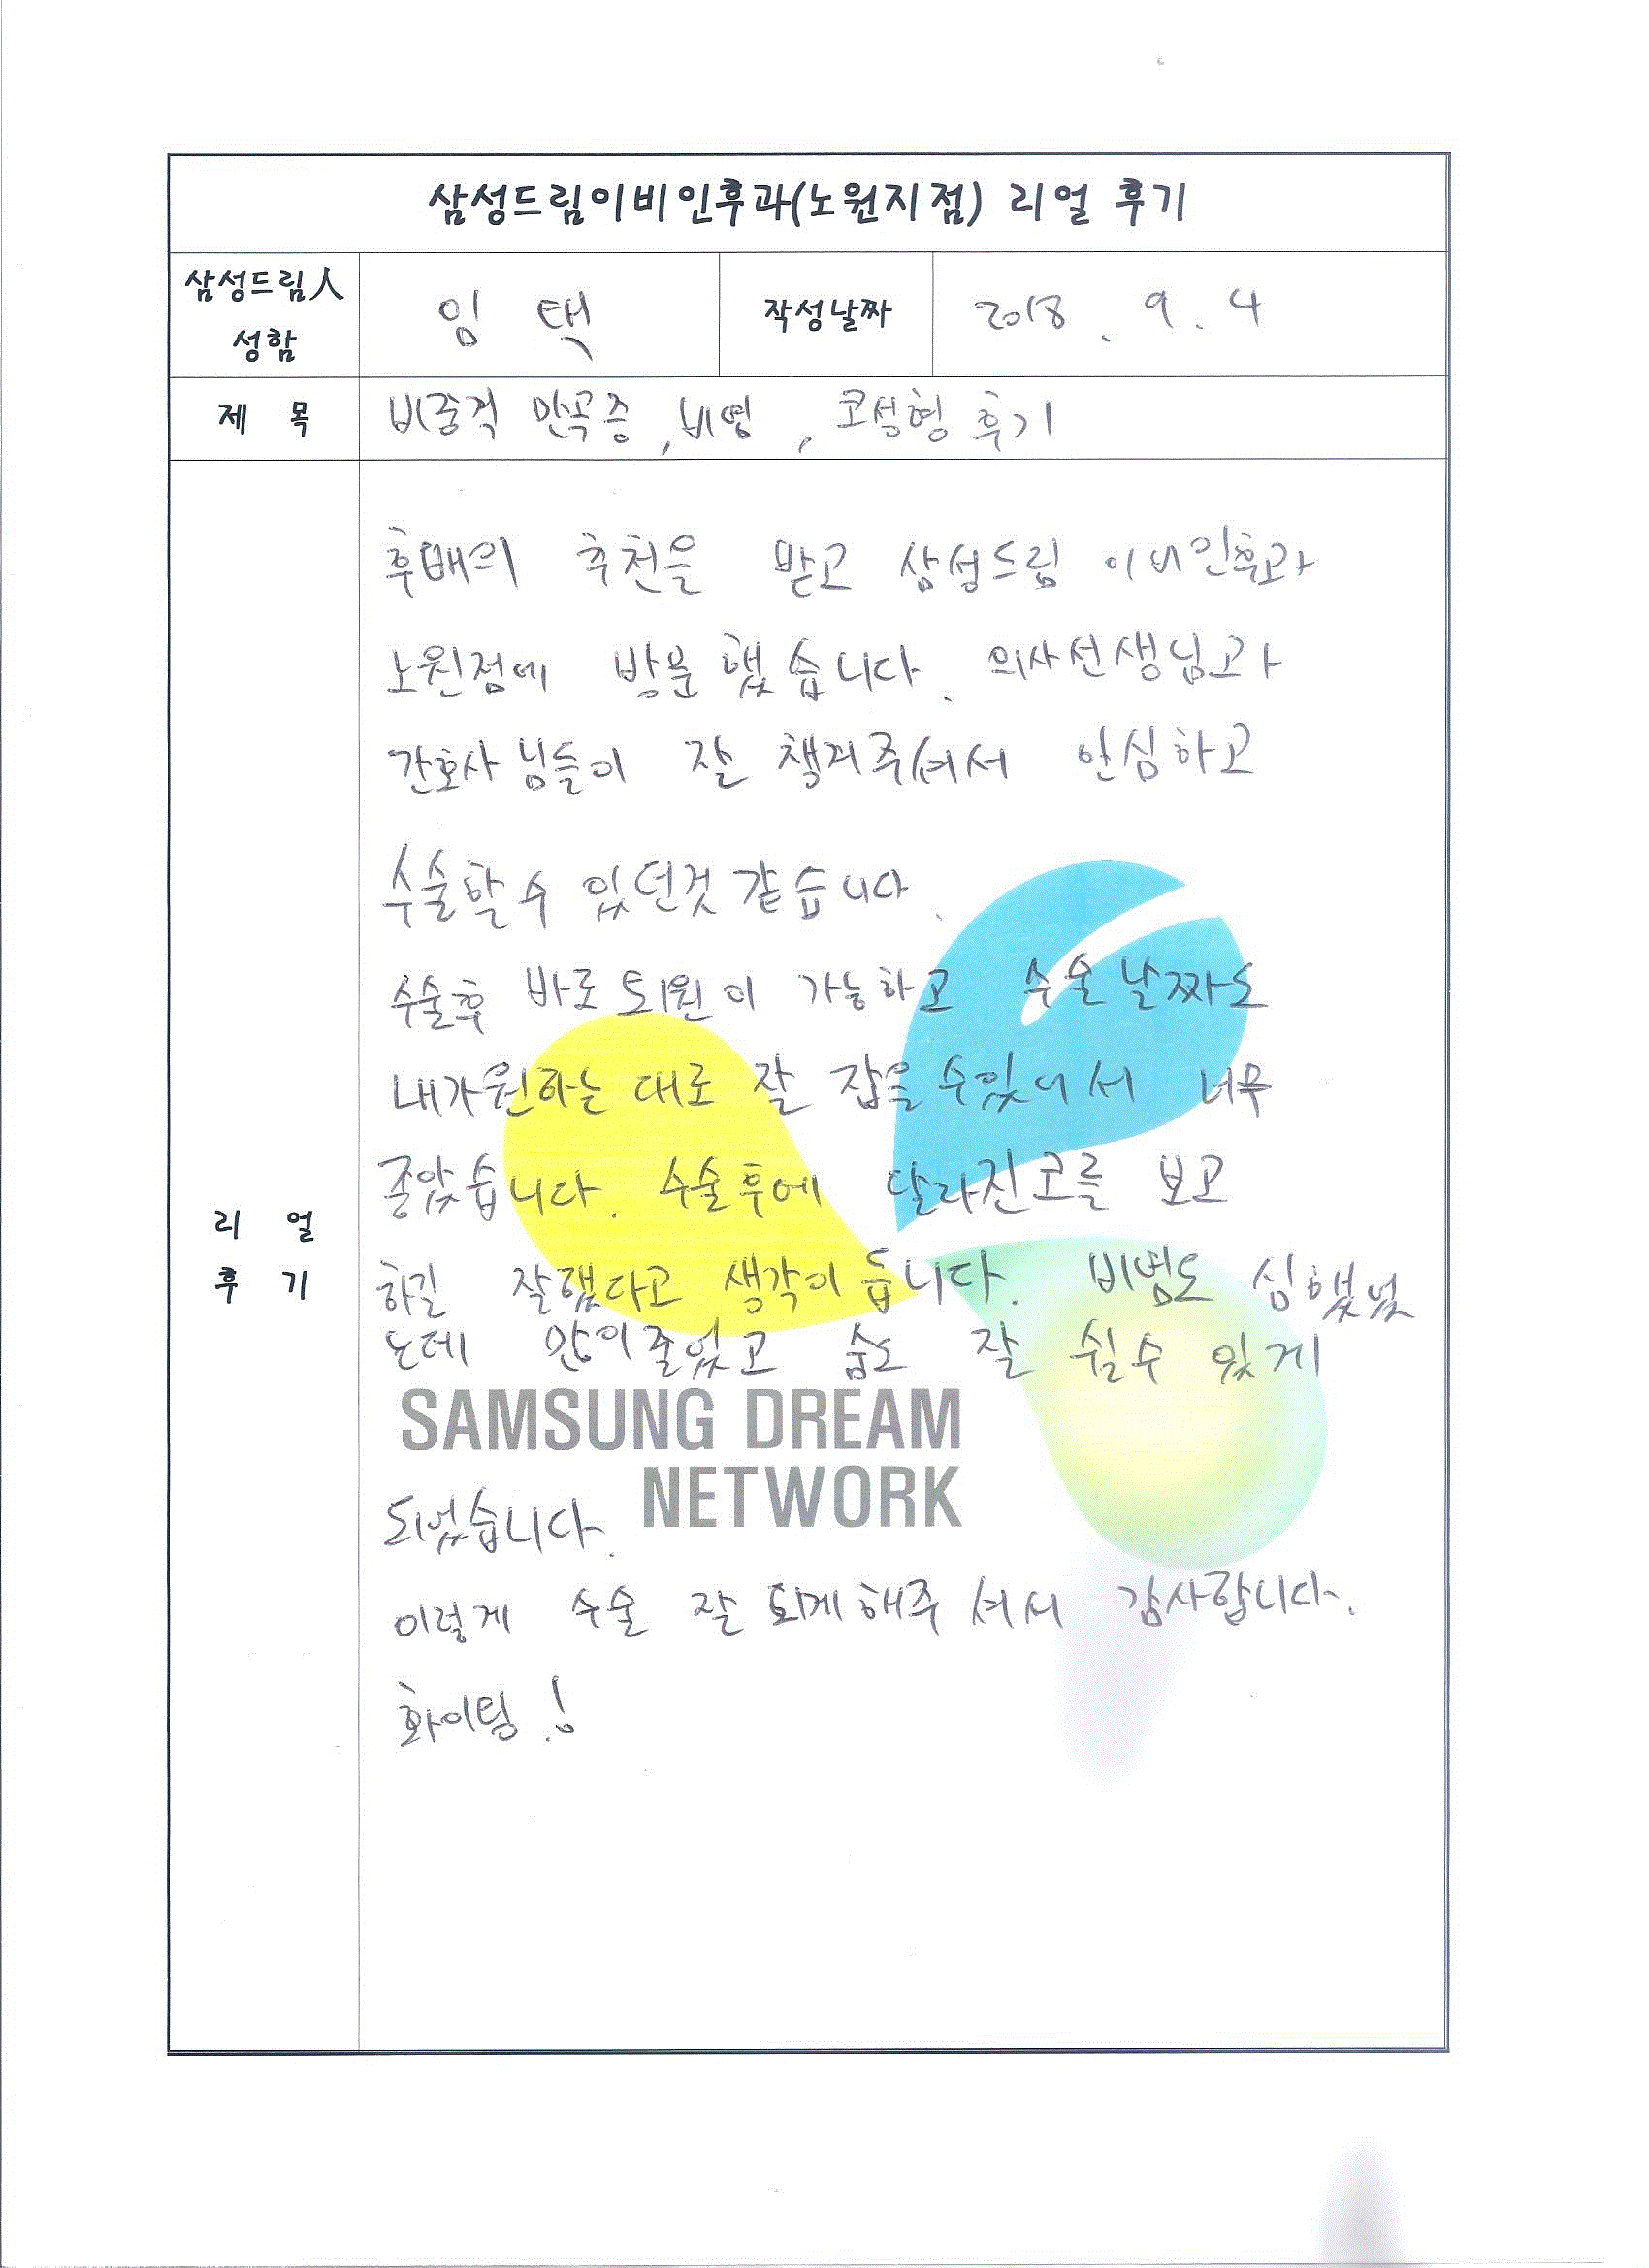 삼성드림이비인후과(노원지점) 리얼 후기
삼성드림人 성함
임 택
작성날짜
2018. 9. 4
제 목
비중격 만곡증, 비염, 코성형 후기
후배의 추천을 받고 삼성드림 이비인후과
노원점에 방문했습니다. 의사선생님과
간호사님들이 잘 챙겨주셔서 안심하고
수술할 수 있던것 같습니다.
수술후 바로 퇴원이 가능하고 수술날짜도
내가원하는 대로 잘 잡을 수있어서 너무
좋았습니다. 수술후에 달라진코를 보고
리 얼
후 기
하길 잘했다고 생각이 듭니다. 비염도 심했었
는데 많이줄었고 숨도 잘 쉴수 있게
SAMSUNG DREAM
NETWORK
되었습니다.
이렇게 수술 잘 되게해주셔서 감사합니다.
화이팅!